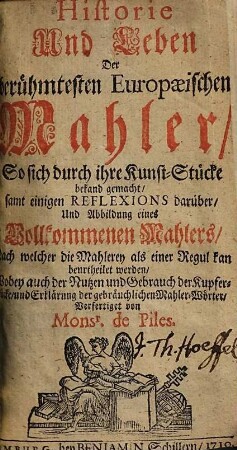 Historie
Und Leben
Der
berühmtesten Europæischen
Mahler/
So sich durch ihre Kunst-Stücke
bekand gemacht/
samt einigen REFLEXIONS darüber/
Und Abbildung eines
Vollkommenen Mahlers/
Nach welcher die Mahlerey als einer Regul kan
beurtheilet werden/
Wobey auch der Nutzen und Gebrauch der Kupfer-
Stücke/und Erklärung der gebräuchlichen Mahler-Wörter/
Verfertiget von
Monsr. de Piles.
J. Th. Hoeffel
HAMBURG, bey BENJAMIN Schillern/ 1710.